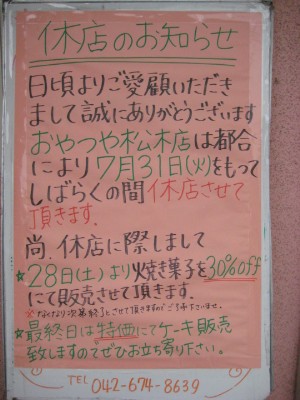 休店のお知らせ
日頃よりご愛顧いただき
まして誠にありがとうございます
おやつや松木店は都合
により7月31日(火)をもって
しばらくの間休店させて
頂きます.
尚.休店に際しまして
★28日(土)より焼き菓子を30%off
にて販売させて頂きます.
※なくなり次第終了とさせて頂きますのでご了承下さいませ.
★最終日は特価にてケーキ販売
致しますのでぜひお立ち寄り下さい。
TEL 042-674-8639